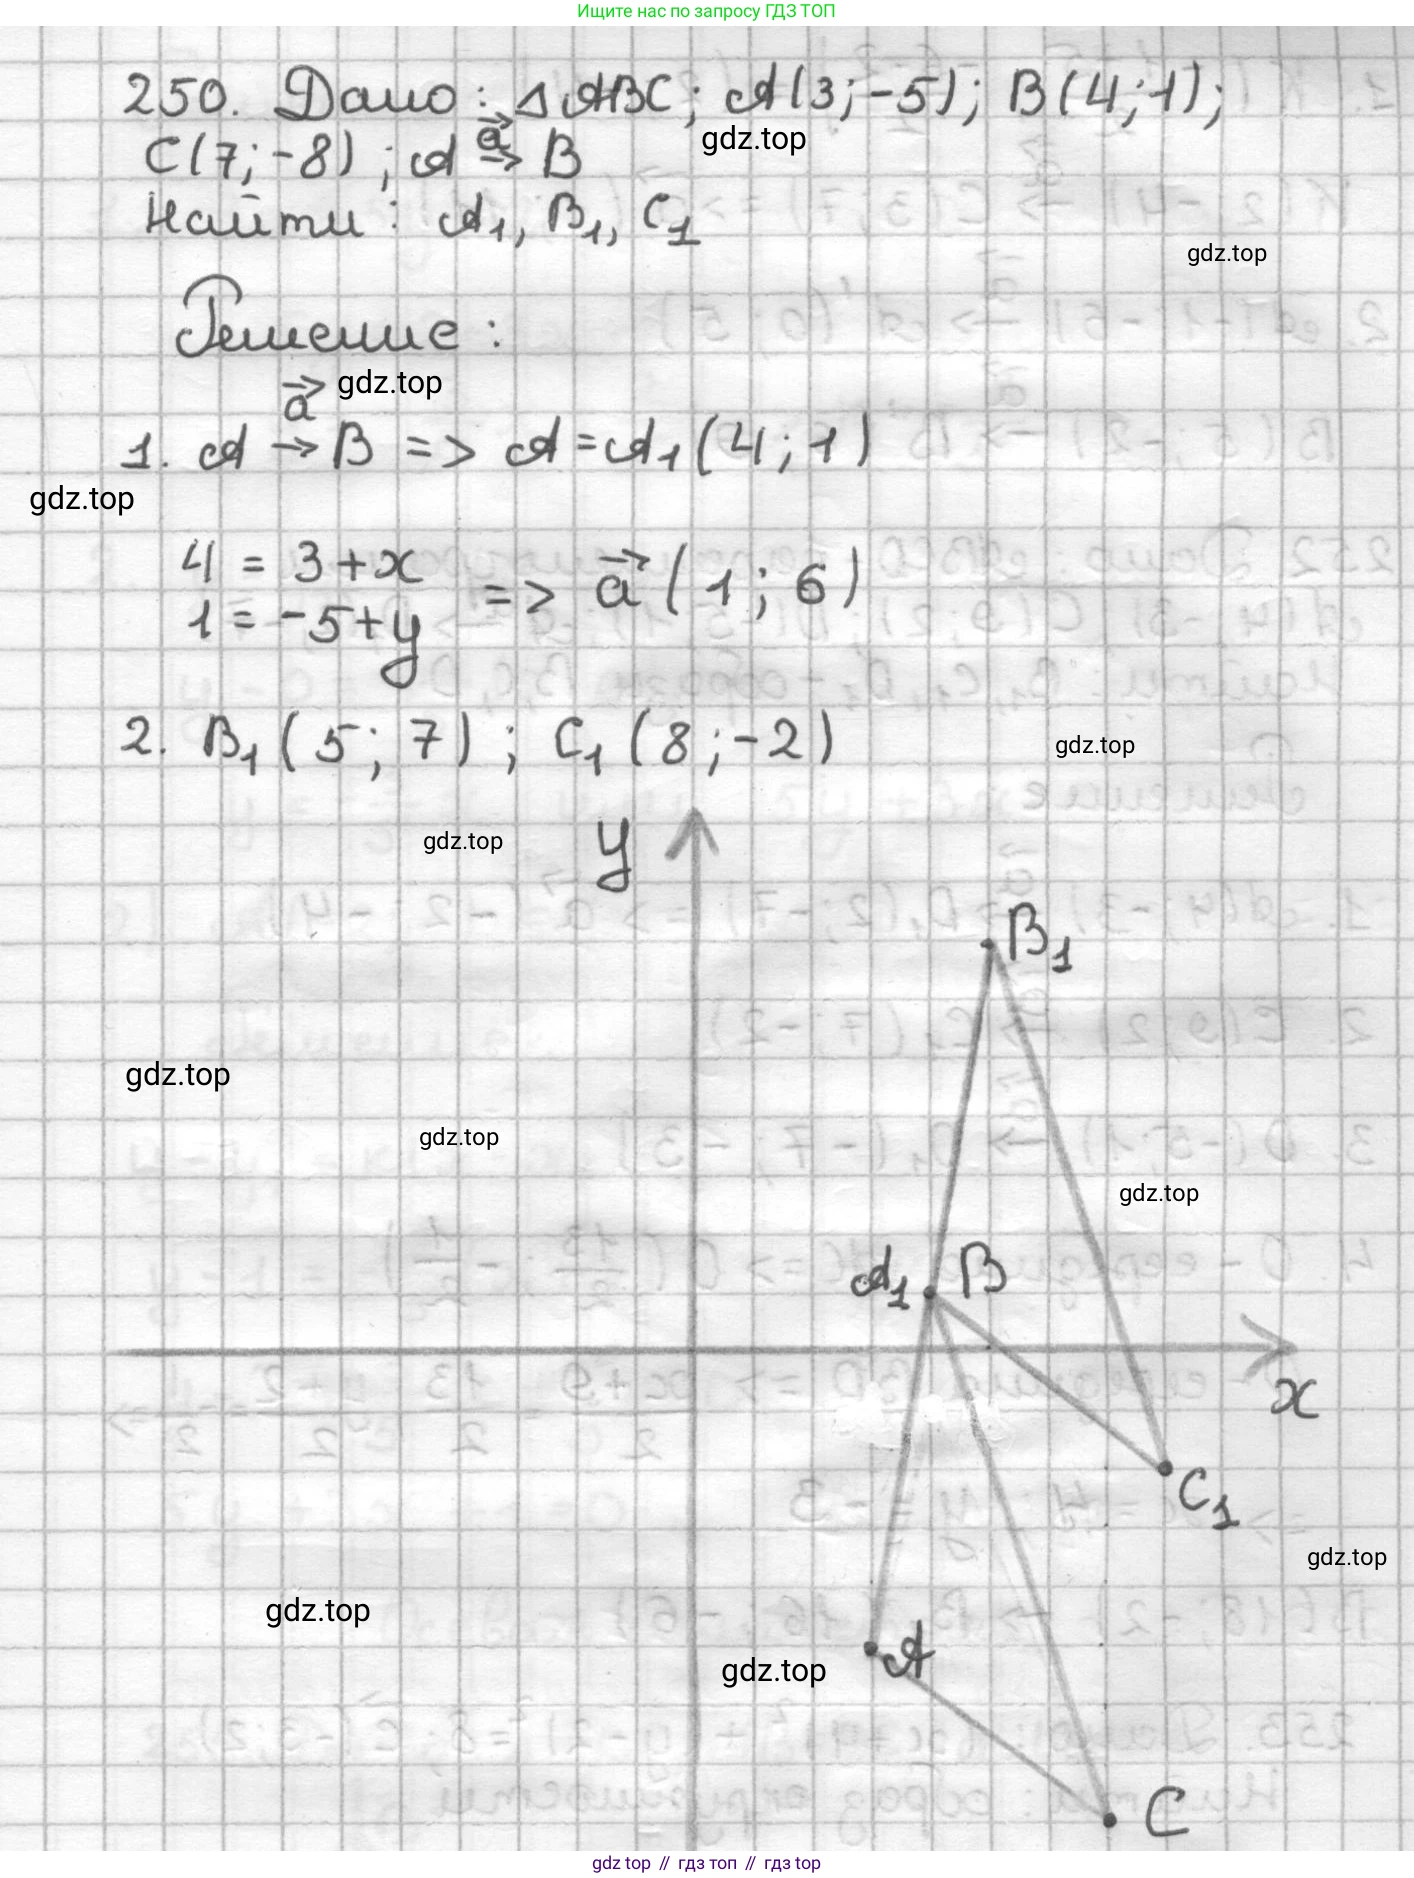 Ищите нас по запросу ГДЗ ТОП
250. Дано: △ ABC; A(3;-5); B(4;1);
gdz.top
C(7;-8); A →a⃗ B
Найти: A₁, B₁, C₁
gdz.top
Решение:
gdz.top
1. A →a⃗ B => A=A₁(4;1)
gdz.top
4 = 3+x
1 = -5+y => a⃗(1;6)
2. B₁(5;7); C₁(8;-2)
gdz.top
gdz.top
y
B₁
gdz.top
gdz.top
gdz.top
A₁ B
x
C₁
gdz.top
gdz.top
A
gdz.top
C
gdz top // гдз топ // gdz top